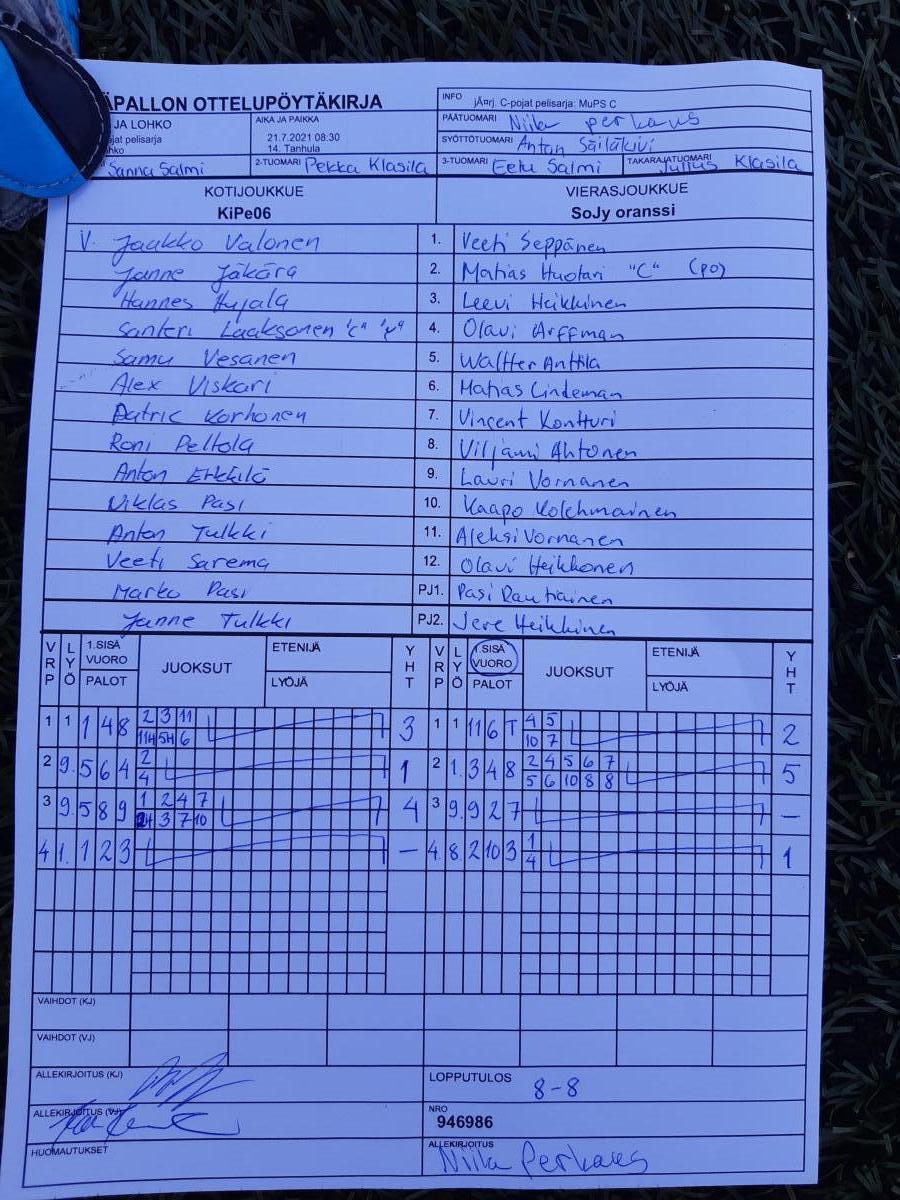 ÄPALLON OTTELUPÖYTÄKIRJA
INFO jÄ¤rj. C-pojat pelisarja: MuPS C
JA LOHKO
AIKA JA PAIKKA
PÄÄTUOMARI Niila Perkaus
jat pelisarja
hko
21.7.2021 08:30
14. Tanhula
SYÖTTÖTUOMARI Antan Säiläkivi
Sanna Salmi
2-TUOMARI Pekka Klasila
3-TUOMARI Eetu Salmi
TAKARAJATUOMARI Julius Klasila
KOTIJOUKKUE VIERASJOUKKUE
KiPe06 SoJy oranssi
V. Jaakko Valonen 1. Veeti Seppänen
Janne Jäkärä 2. Matias Huotari "C" (po)
Hannes Hujala 3. Leevi Heikkinen
Santeri Laaksonen "C" 4. Olavi Arffman
Samu Vesanen 5. Waltter Anttila
Alex Viskari 6. Matias Lindeman
Patric Korhonen 7. Vincent Kontturi
Roni Peltola 8. Viljami Ahtonen
Anton Erkkilä 9. Lauri Vornanen
Niklas Pasi 10. Kaapo Kolehmainen
Anton Tulkki 11. Aleksi Vornanen
Veeti Sarema 12. Olavi Heikkonen
Marko Pasi PJ1. Pasi Rautiainen
Janne Tulkki PJ2. Jere Heikkinen
VRP LYÖ 1.SISÄ VUORO PALOT JUOKSUT ETENIJÄ LYÖJÄ YHT VRP LYÖ 1.SISÄ VUORO PALOT JUOKSUT ETENIJÄ LYÖJÄ YHT
1 1 1 4 8 2 3 11 3 1 1 11 6 T 4 5 2
6 10 7
2 9. 5 6 4 2 1 2 1. 3 4 8 2 4 5 6 7 5
4 5 6 10 8 8
3 9. 5 8 9 1 2 4 7 4 3 9. 9 2 7 –
3 7 10
4 1. 1 2 3 – 4. 8. 2 10 3 1 1
4
VAIHDOT (KJ)
VAIHDOT (VJ)
ALLEKIRJOITUS (KJ)
LOPPUTULOS 8-8
ALLEKIRJOITUS (VJ)
NRO
946986
HUOMAUTUKSET
ALLEKIRJOITUS
Niila Perkaus